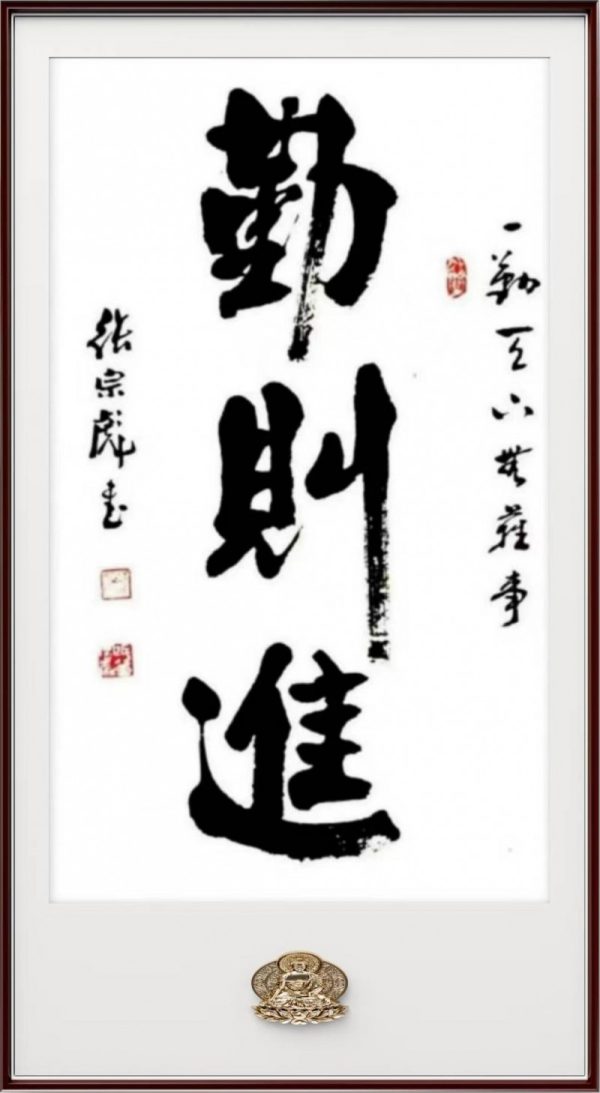 一勤天下無難事
勤則進
張宗彪書